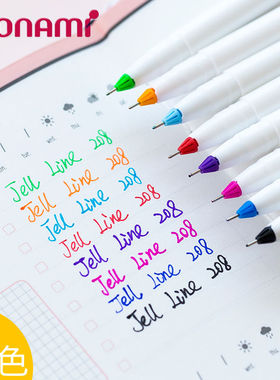 onami
Jell Line 208
Jell Line 208
Jell Line 208
Jell Line 208
Jell Line 208
Jell Line 208
Jell Line 208
Jell Line 208
色